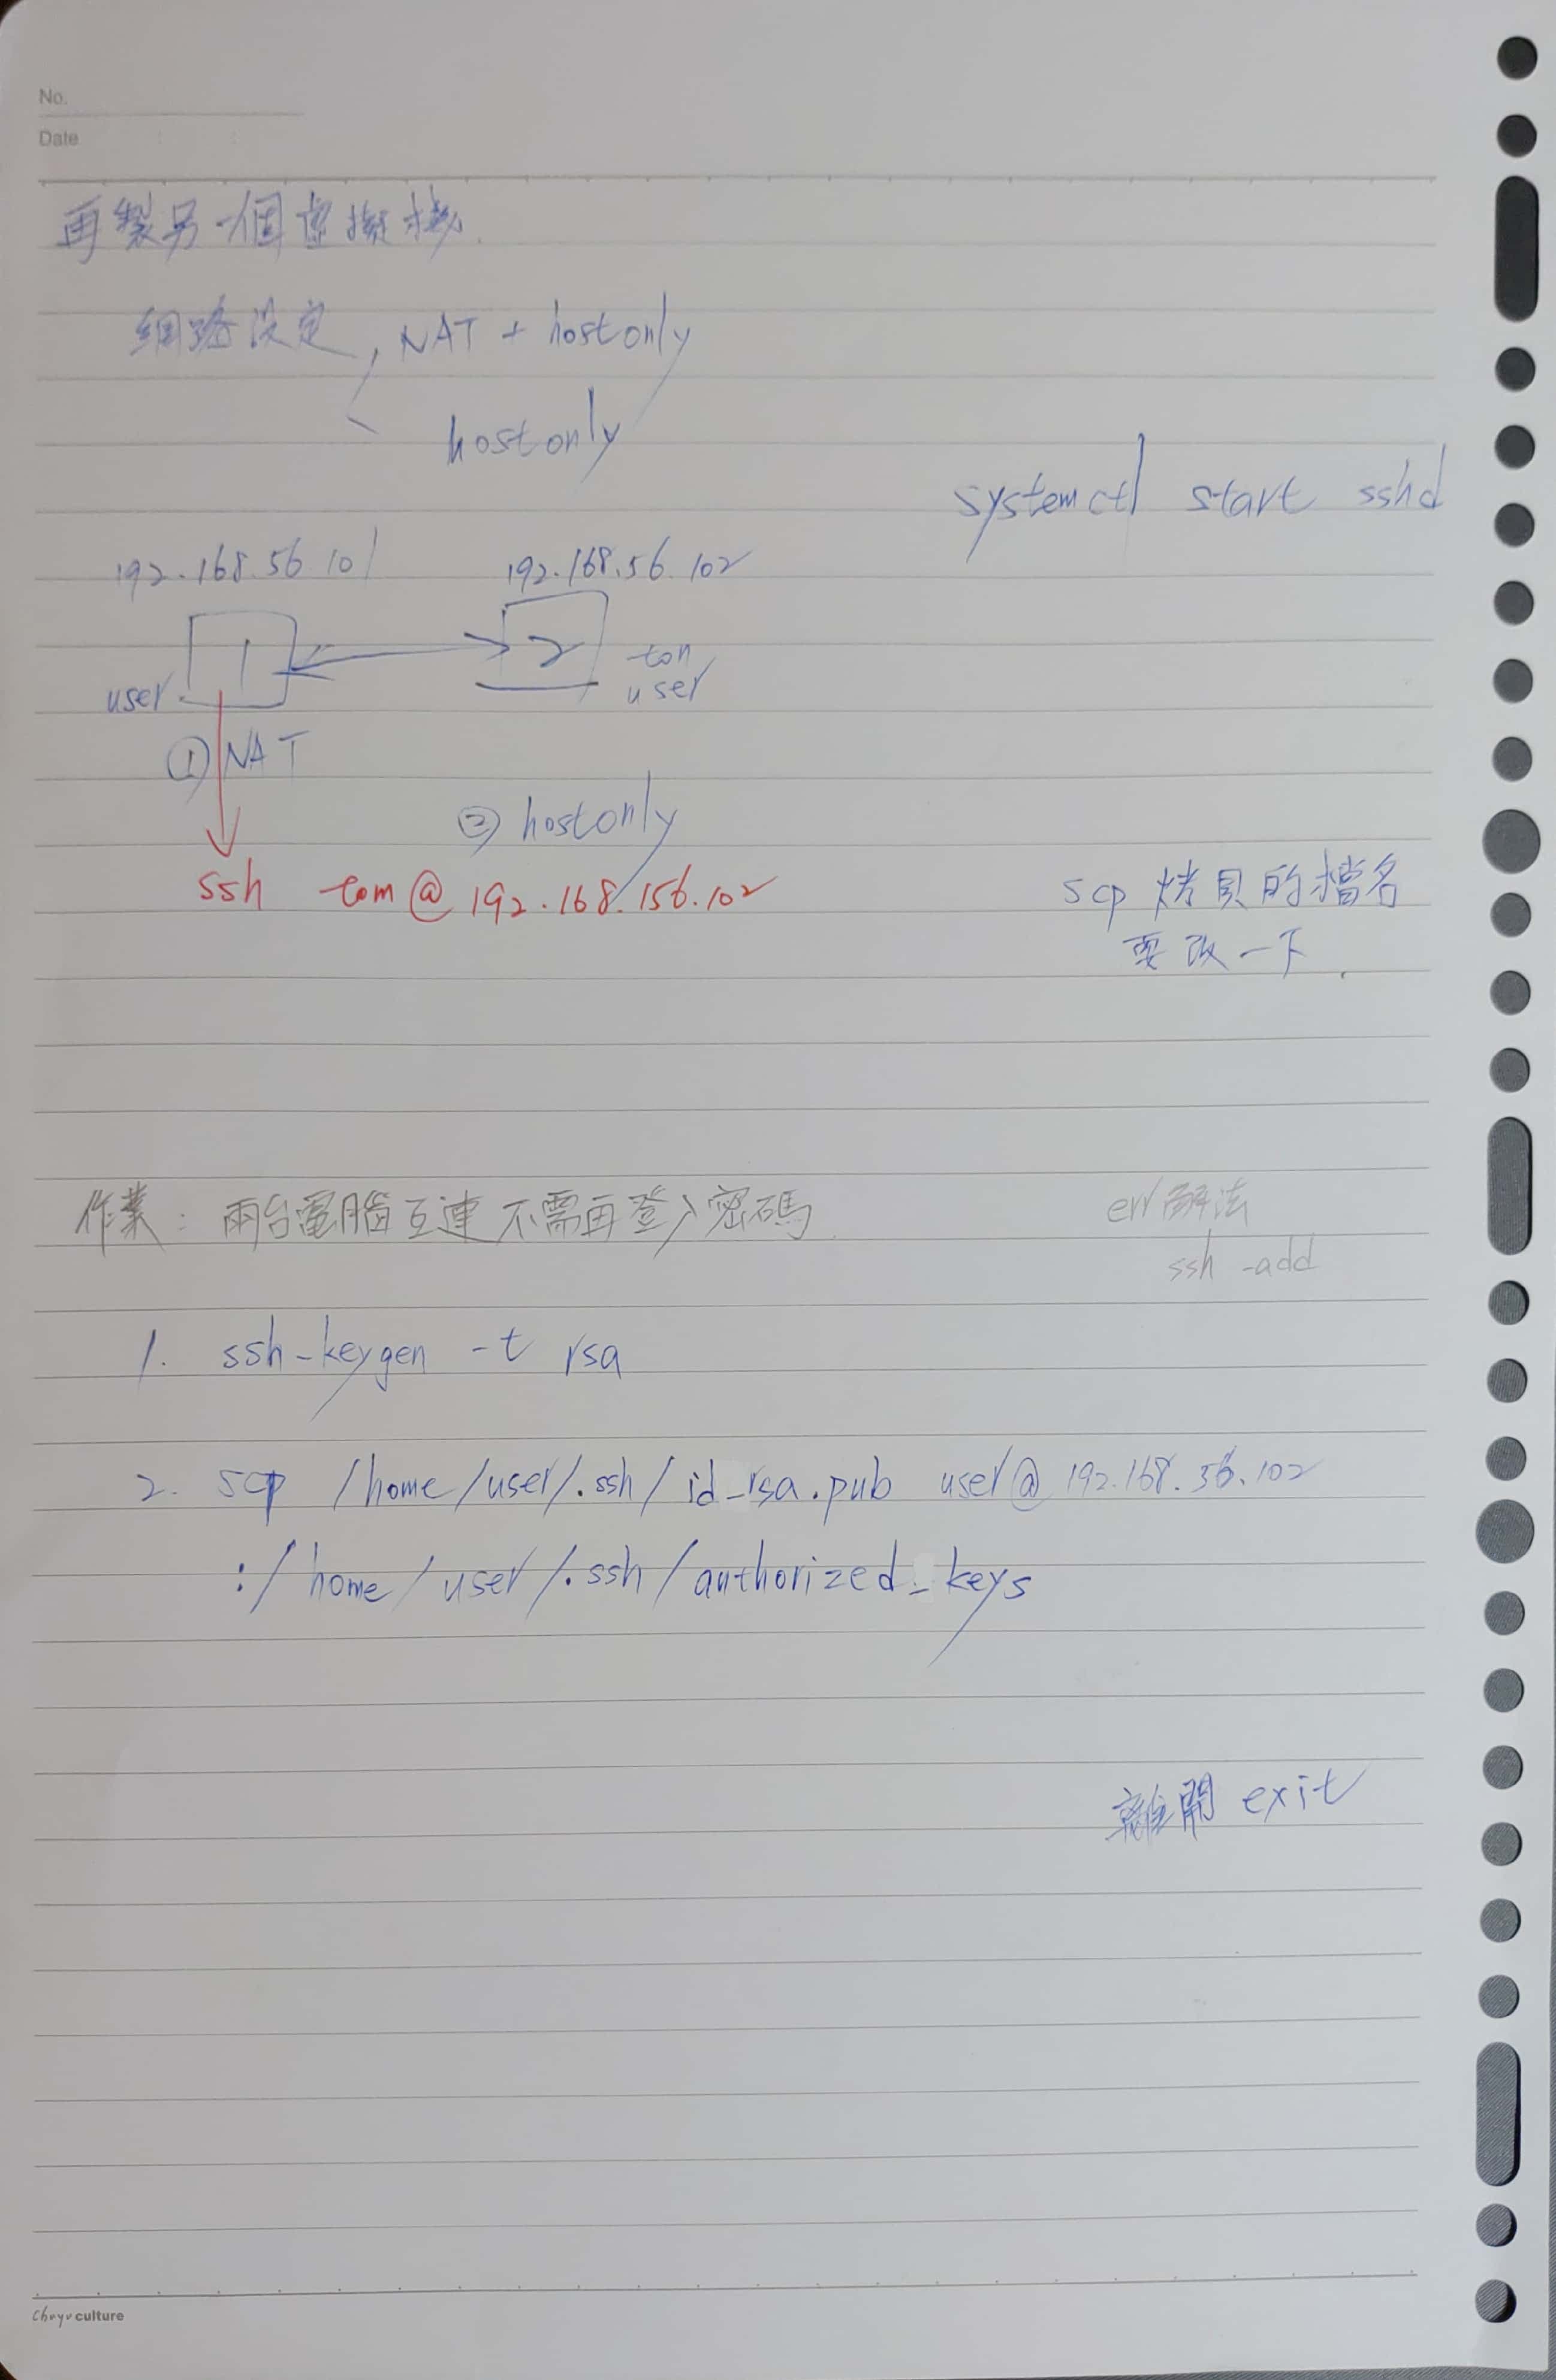 No.
Date
再製另一個虛擬機.
網路設定, NAT + hostonly
hostonly
systemctl start sshd
192.168.56.101 192.168.56.102
1 2
ton
user user
① NAT
② hostonly
ssh tom@192.168.156.102
scp 烤貝的檔名
要改一下.
作業: 兩台電腦互連 不需再登入密碼.
err解法
ssh -add
1. ssh-keygen -t rsa
2. scp /home/user/.ssh/id_rsa.pub user@192.168.56.102
:/home/user/.ssh/authorized_keys
離開 exit
Choyo culture